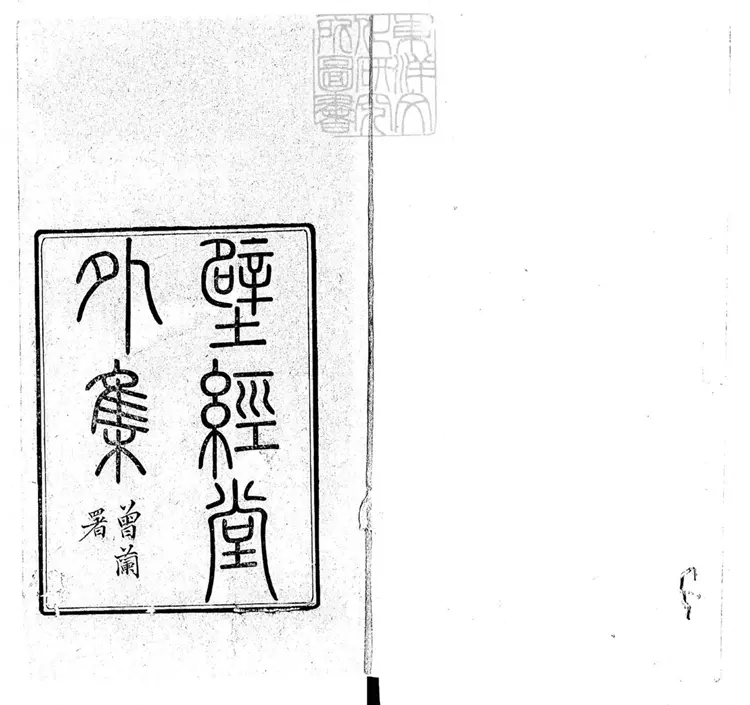 東洋文
化研究
所圖書
壁經堂
外集
曾蘭
署